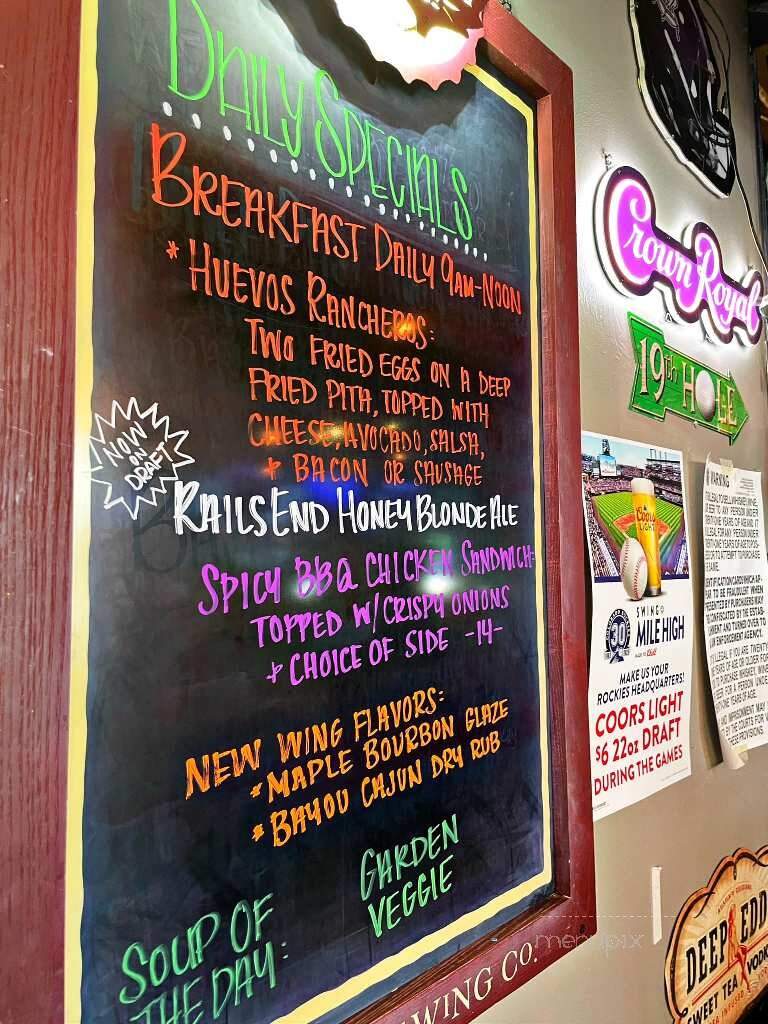 DAILY SPECIALS
BREAKFAST DAILY 9AM-NOON
* HUEVOS RANCHEROS:
TWO FRIED EGGS ON A DEEP
FRIED PITA, TOPPED WITH
CHEESE, AVOCADO, SALSA,
+ BACON OR SAUSAGE
NOW
ON
DRAFT
RAILS END HONEY BLONDE ALE
SPICY BBQ CHICKEN SANDWICH:
TOPPED W/ CRISPY ONIONS
+ CHOICE OF SIDE -14-
NEW WING FLAVORS:
* MAPLE BOURBON GLAZE
* BAYOU CAJUN DRY RUB
SOUP OF
THE DAY:
GARDEN
VEGGIE
WING CO.
Crown Royal
19th HOLE
Coors
LIGHT
30
SWING
MILE HIGH
MAKE US YOUR
ROCKIES HEADQUARTERS!
COORS LIGHT
$6 22oz DRAFT
DURING THE GAMES
WARNING
DEEP EDD
SWEET TEA VODK
menupix